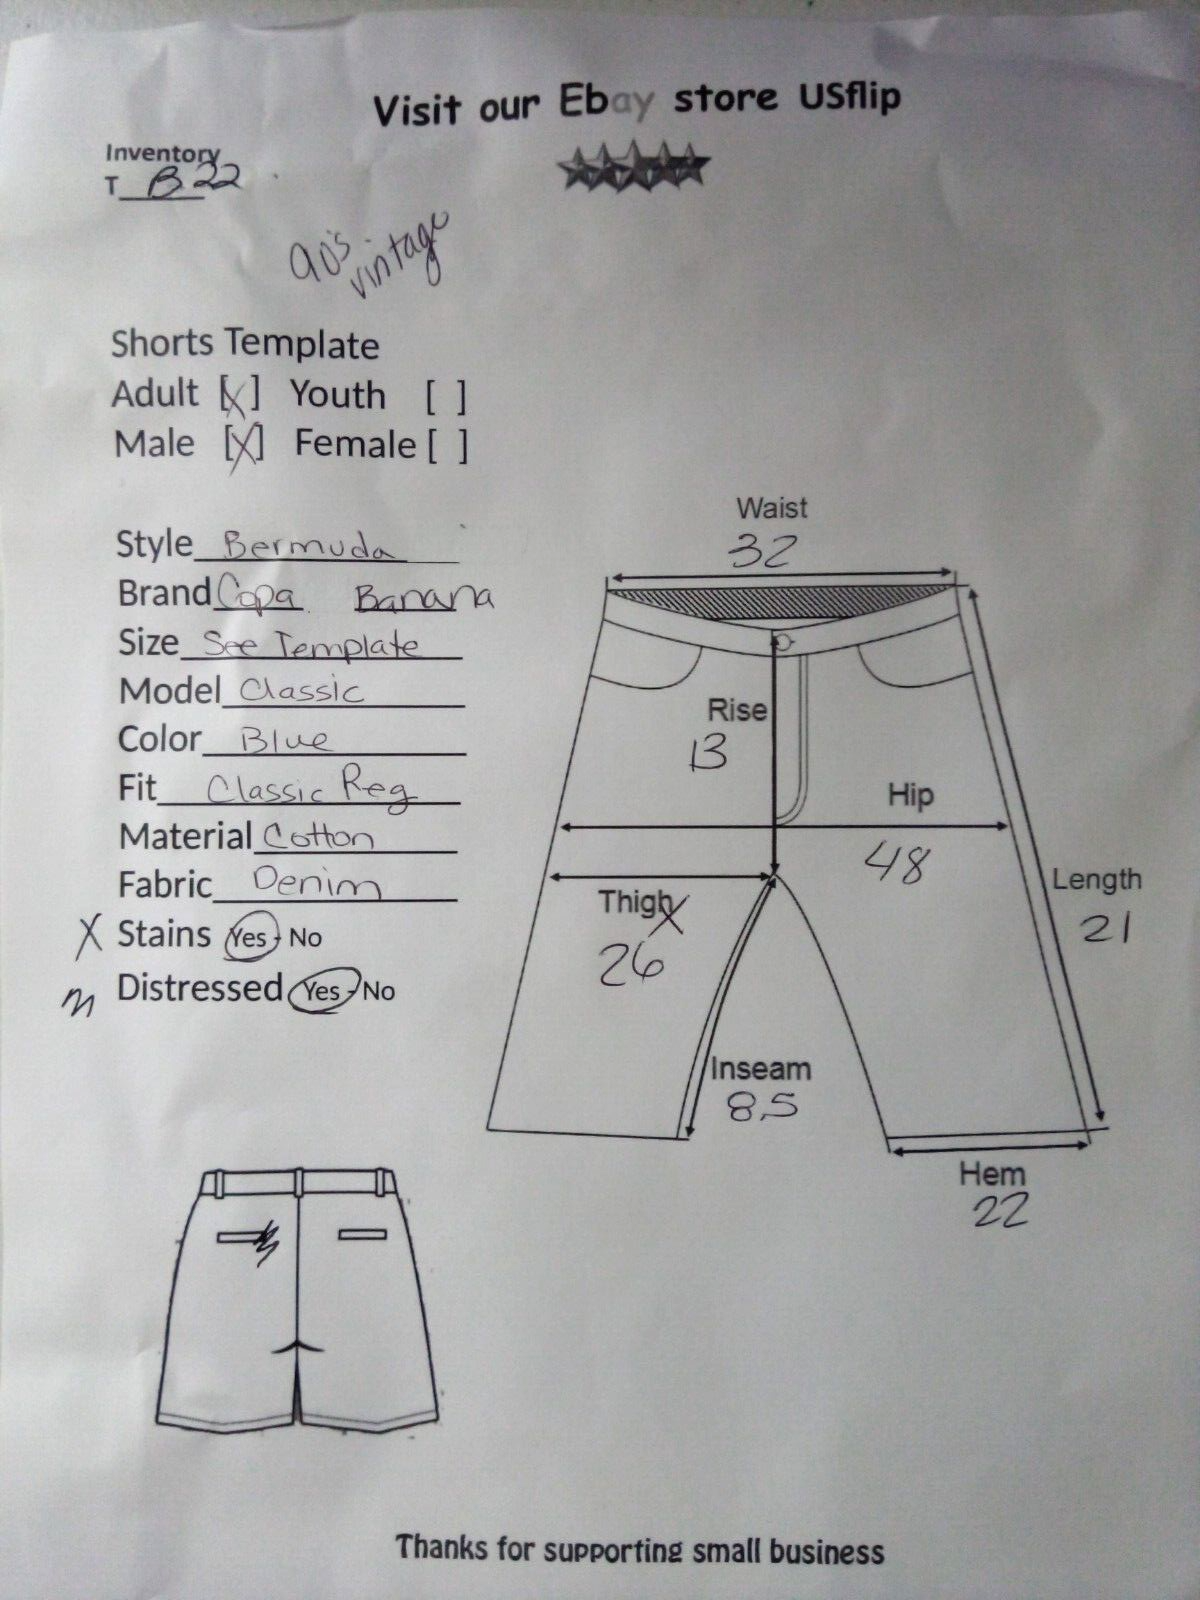 Visit our Ebay store USflip
Inventory
T B22
90's
vintage
Shorts Template
Adult [X] Youth [ ]
Male [X] Female [ ]
Style Bermuda
Brand Copa Banana
Size See Template
Model Classic
Color Blue
Fit Classic Reg
Material Cotton
Fabric Denim
X Stains Yes - No
m Distressed Yes - No
Waist
32
Rise
13
Hip
48
Thigh X
26
Length
21
Inseam
8.5
Hem
22
Thanks for supporting small business